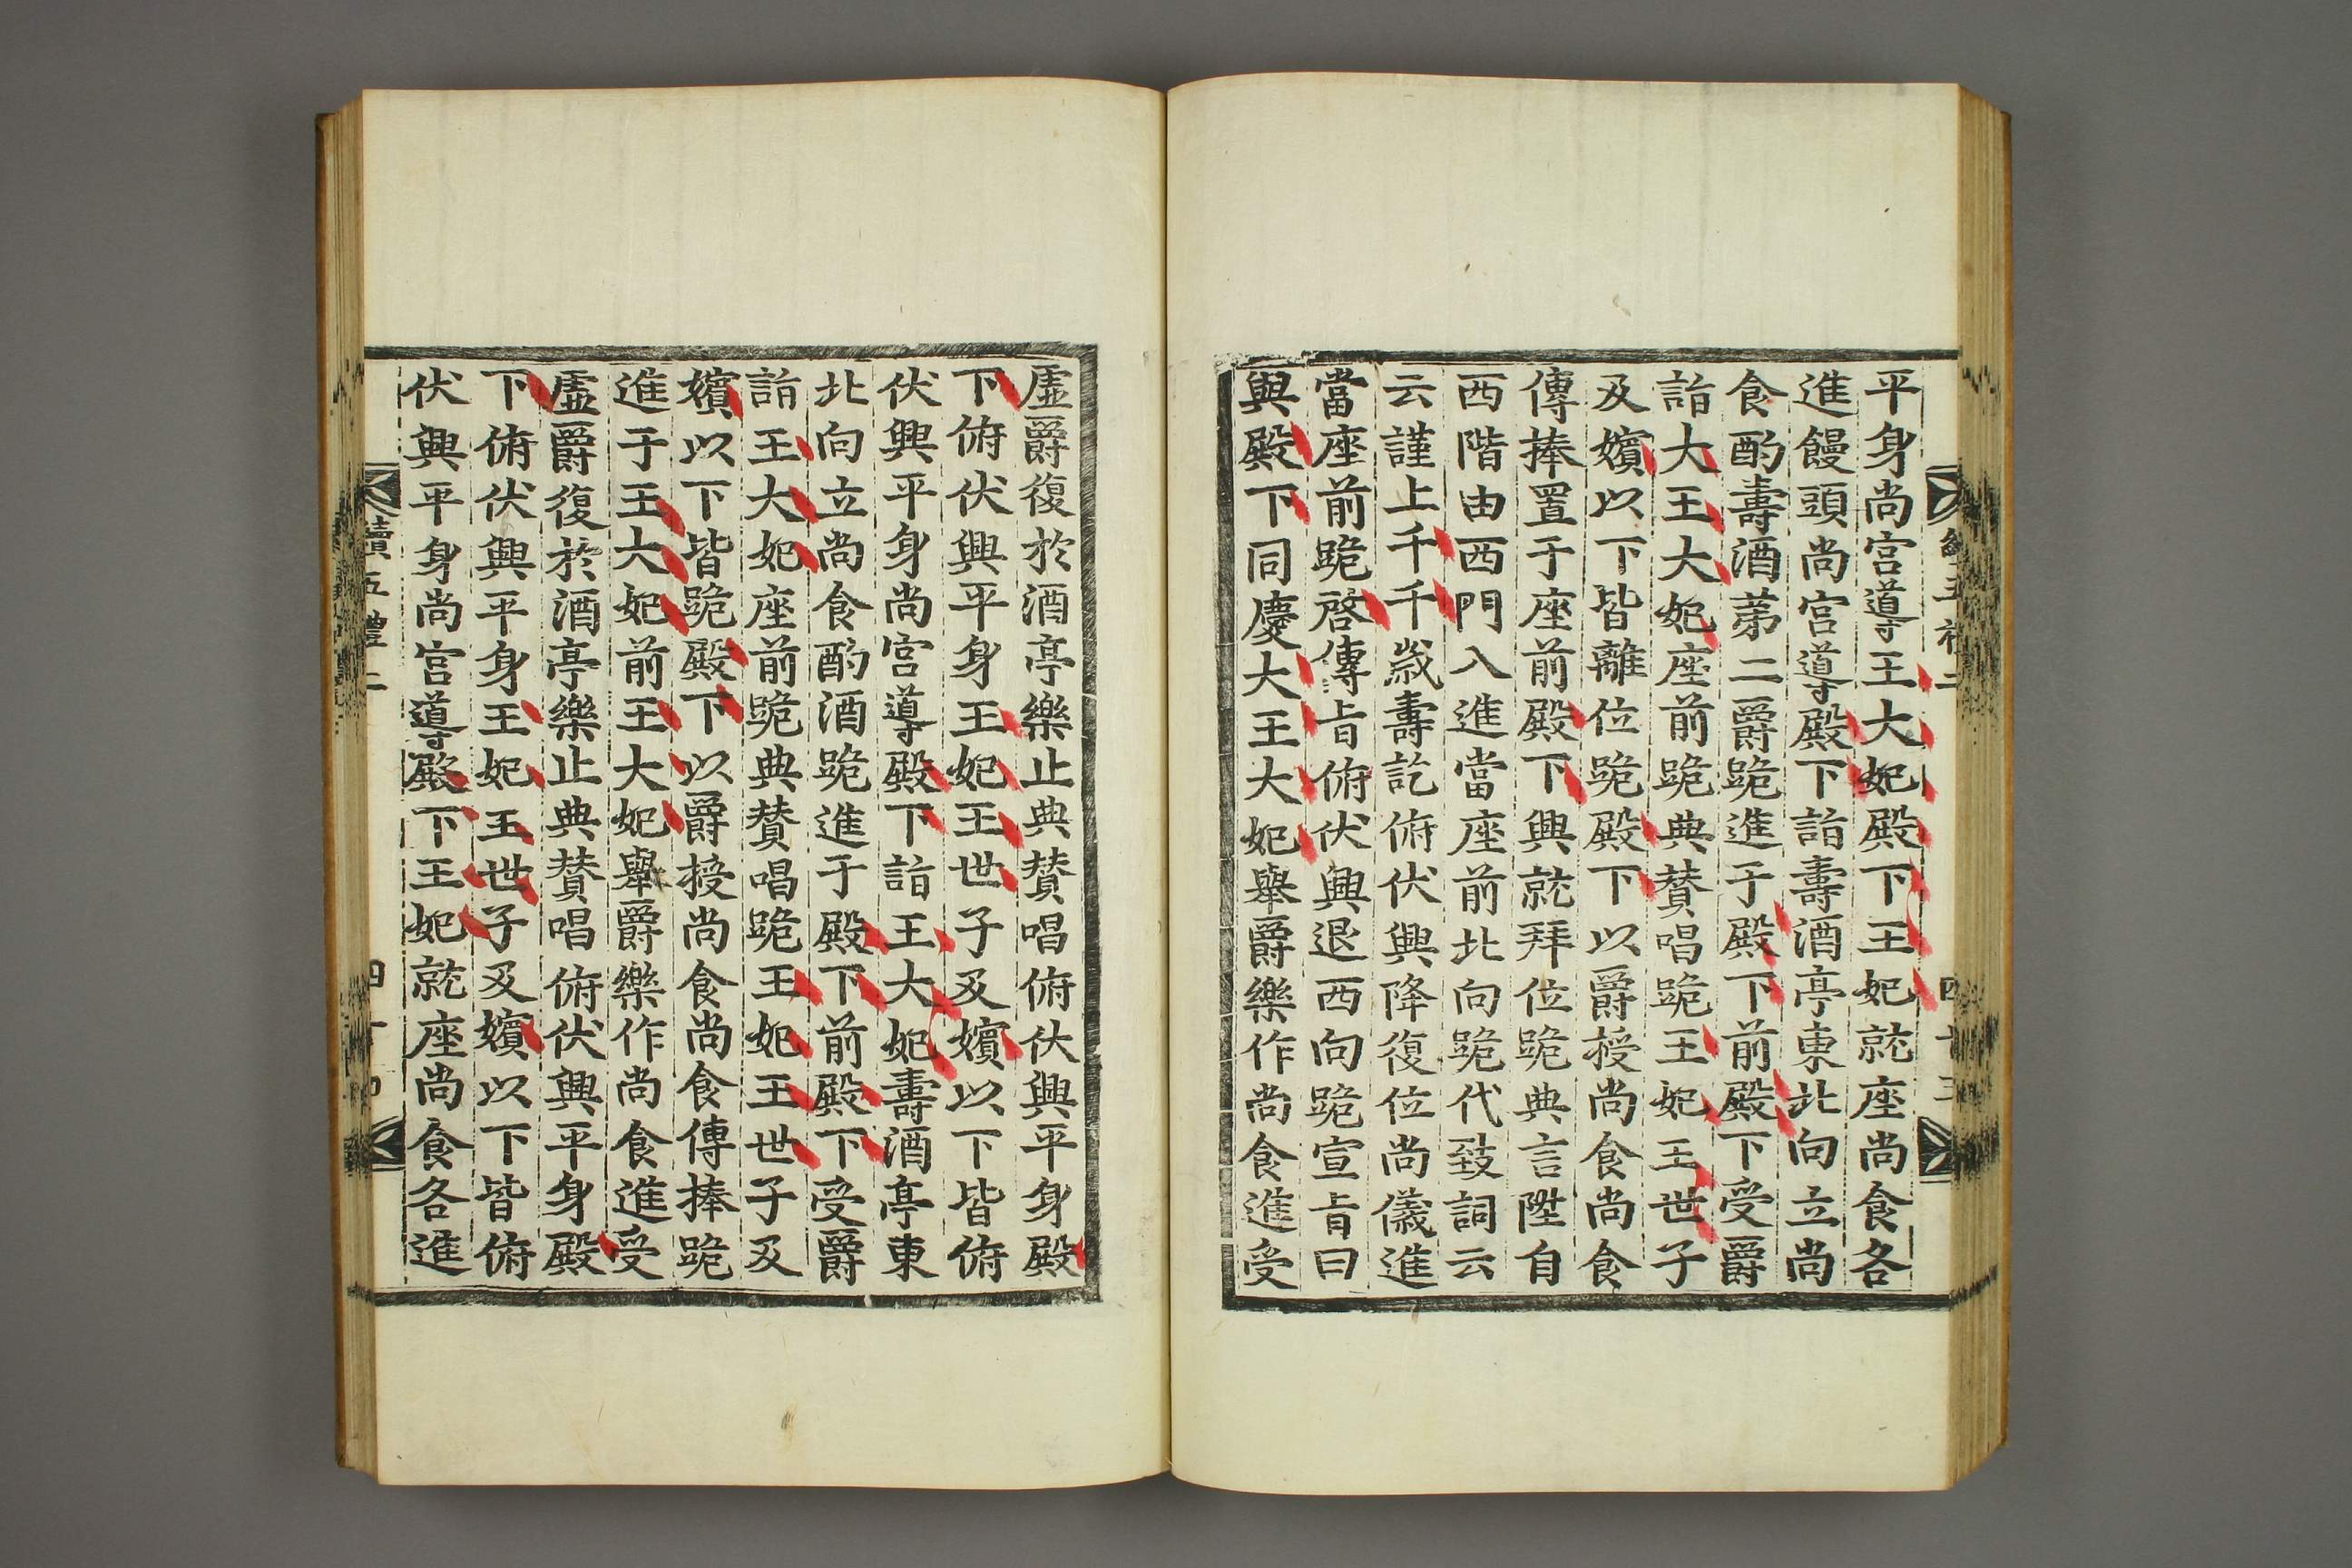 平身尚宮導王大妃殿下王妃就座尚食各
進饅頭尚宮導殿下詣壽酒亭東北向立尚
食酌壽酒第二爵跪進于殿下前殿下受爵
詣大王大妃座前跪典贊唱跪王妃王世子
及嬪以下皆離位跪殿下以爵授尚食尚食
傳捧置于座前殿下興就拜位跪典言陞自
西階由西門入進當座前北向跪代致詞云
云謹上千千歲壽訖俯伏興降復位尚儀進
當座前跪啓傳旨俯伏興退西向跪宣旨曰
與殿下同慶大王大妃舉爵樂作尚食進受
虛爵復於酒亭樂止典贊唱俯伏興平身殿
下俯伏興平身王妃王世子及嬪以下皆俯
伏興平身尚宮導殿下詣王大妃壽酒亭東
北向立尚食酌酒跪進于殿下前殿下受爵
詣王大妃座前跪典贊唱跪王妃王世子及
嬪以下皆跪殿下以爵授尚食尚食傳捧跪
進于王大妃前王大妃舉爵樂作尚食進受
虛爵復於酒亭樂止典贊唱俯伏興平身殿
下俯伏興平身王妃王世子及嬪以下皆俯
伏興平身尚宮導殿下王妃就座尚食各進
續五禮二